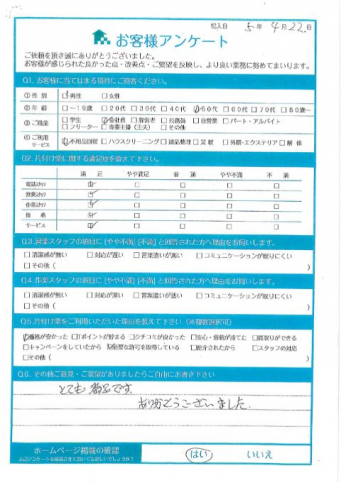 記入日 5年 4月 22日
お客様アンケート
ご依頼を頂き誠にありがとうございました。
お客様が感じられた良かった点・改善点・ご要望を反映し、より良い業務に努めてまいります。
Q1. お客様に当てはまる項目にご回答ください。
①性別 ☑男性 □女性
②年齢 □~19歳 □20代 □30代 □40代 ☑50代 □60代 □70代 □80歳~
③ご職業 □学生 ☑会社員 □自営業 □パート・アルバイト
□フリーター □専業主婦(主夫) □その他
④ご利用サービス ☑不用品回収 □ハウスクリーニング □遺品整理 □買取 □外構・エクステリア □解体
Q2. 片付け堂に関する満足度を教えて下さい。
満足 やや満足 普通 やや不満 不満
電話受付 ☑ □ □ □ □
営業受付 ☑ □ □ □ □
作業受付 ☑ □ □ □ □
価格 ☑ □ □ □ □
サービス ☑ □ □ □ □
Q3. 営業スタッフの項目に【やや不満】【不満】と回答された方へ理由をお伺いします。
□清潔感が無い □対応が遅い □言葉遣いが悪い □コミュニケーションが取りにくい
□その他( )
Q4. 作業スタッフの項目に【やや不満】【不満】と回答された方へ理由をお伺いします。
□清潔感が無い □対応が遅い □言葉遣いが悪い □コミュニケーションが取りにくい
□その他( )
Q5. 片付け堂をご利用いただいた理由を教えて下さい(※複数選択可)
☑価格が安かった □Tポイントが貯まる □クチコミが良かった □安心・信頼が持てた □買取りができる
□キャンペーンをしていたから ☑必要な許可を取得している □紹介されたから □スタッフの対応
□その他( )
Q6. その他ご意見・ご要望がありましたらご自由にお書き下さい
とても満足です。
ありがとうございました。
ホームページ掲載の確認
はい いいえ